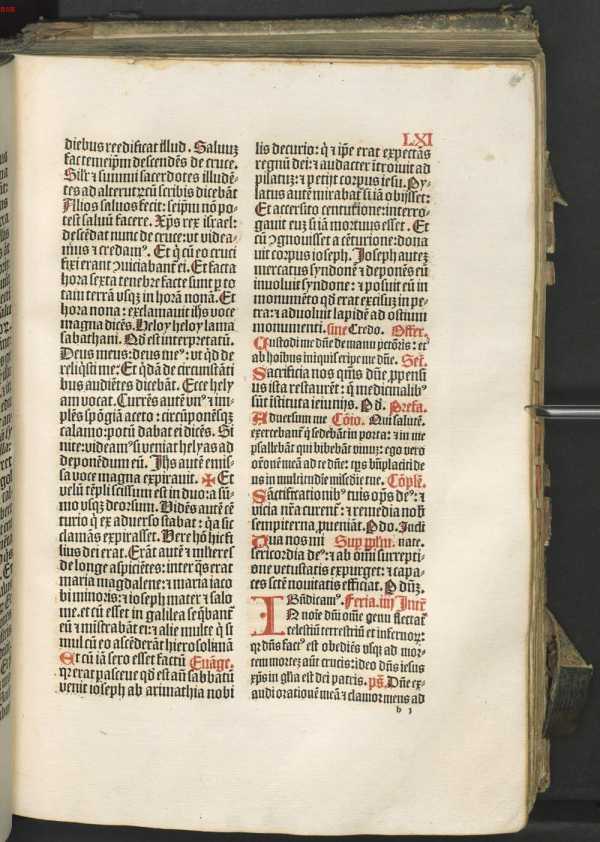 LXI
diebus reedificat illud. Saluuȝ
fac temeip̄m descendēs de cruce.
Silr̄ ⁊ summi sacerdotes illudē-
tes ad alterutꝝ cū scribis dicebāt
Alios saluos fecit: seip̄m nō po-
test saluū facere. Xp̄s rex israel:
descēdat nunc de cruce: vt videa-
mus ⁊ credamꝰ. Et q̇ cū eo cruci
fixi erant ꝯuiciabant̄ ei. Et facta
hora sexta tenebre facte sunt p to
tam terrā vsqꝫ in horā nonā. Et
hora nona: exclamauit ihs voce
magna dicēs. Heloy heloy lama
sabathani. Qd̓ est interpretatū.
Deus meus: deus meꝰ: vt qd̓ de
reliq̇sti me: Et q̇dā de circumstāti
bus audiētes dicebāt. Ecce hely
am vocat. Currēs autē vnꝰ ⁊ im-
plēs spōgiā aceto: circūponēsqꝫ
calamo: potū dabat ei dicēs. Si
nite: videamꝰ si veniat helyas ad
deponēdum eū. Ihs autē emis-
sa voce magna expirauit. ✠ Et
velū tēpli scissum est in duo: a sū-
mo vsqꝫ deorsum. Vidēs autē cē
turio q̇ ex aduerso stabat: q̇a sic
clamās expirasset. Vere hō hic fi
lius dei erat. Erāt autē ⁊ mlieres
de longe aspiciētes: inter q̇s erat
maria magdalene: ⁊ maria iaco
bi minoris: ⁊ ioseph mater ⁊ salo
me. et cū esset in galilea seq̇bant̄
eū ⁊ mīstrabāt ei: ⁊ alie multe q̇ si
mul cū eo ascēderāt hierosolimā
Et cū iā sero esset factū Euāge.
qꝛ erat pasceue qd̓ est añ sabbatū
venit ioseph ab arimathia nobi
lis decurio: q̇ ⁊ ip̄e erat expectās
regnū dei: ⁊ audacter ītroiuit ad
pilatuȝ: ⁊ petijt corpus iesu. Py-
latus autē mirabat̄ si iā obijsset:
Et accersito centurione: interro-
gauit euȝ si iā mortuus esset. Et
cū ꝯgnouisset a cēturione: dona
uit corpus ioseph. Ioseph auteȝ
mercatus syndonē ⁊ deponēs eū
inuoluit syndone: ⁊ posuit eum in
monumēto qd̓ erat excisuȝ in pe-
tra: ⁊ aduoluit lapidē ad ostium
monumenti. sine Credo. Offer.
Custodi me dn̄e de manu pctōris: et
ab hoībus iniquis eripe me dn̄e. Set̄.
Sacrificia nos q̄ms dn̄e ꝓpensi
us ista restaurēt: q̇ medicinalibꝰ
sūt īstituta ieiunijs. P d. Prefa.
Aduersum me Cōio. Qui salutē.
exercebant̄ q̇ sedebāt in porta: ⁊ in me
psallebāt qui bibebāt vinuȝ: ego vero
orōnē meā ad te dn̄e: tp̄s bn̄placiti de
us in multitudīe misc̄die tue. Cōplē.
Sanctificationibꝰ tuis op̄s deꝰ: ⁊
vicia nr̄a curent̄: ⁊ remedia nob̄
sempiterna ꝓueniāt. P do. Incli
Tua nos mi Sup pp̄lm. nate.
sericordia deꝰ: ⁊ ab omī surrepti-
one vetustatis expurget: ⁊ capa-
ces sc̄tē nouitatis efficiat. P dn̄ȝ.
Bn̄dicamꝰ. Feria. iiij Intr̄
IN noīe dn̄i om̄e genu flectat̄
celestiū terrestriū et infernoꝝ:
qꝛ dn̄s factꝰ est obediēs vsqꝫ ad mor-
tem morteȝ autē crucis: ideo dn̄s iesus
xp̄s in gl̄ia est dei patris. pš. Dn̄e ex-
audi orationē meā: ⁊ clamor meus ad
h 1